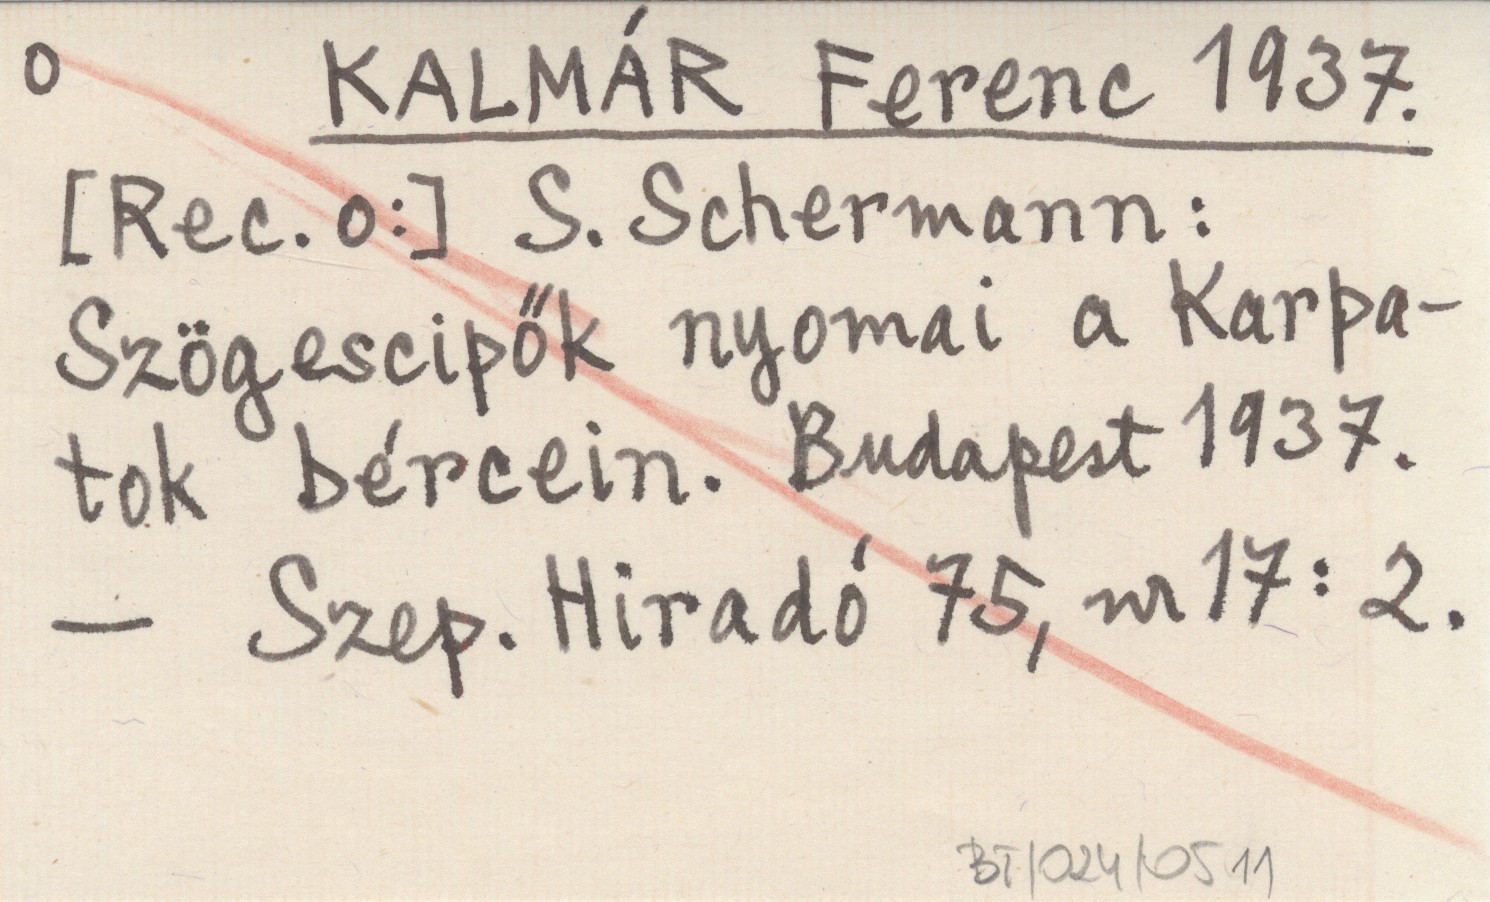 o KALMÁR Ferenc 1937.
[Rec. o:] S. Schermann:
Szögescipők nyomai a Karpa-
tok bércein. Budapest 1937.
— Szep. Hiradó 75, nr 17: 2.
BT/024/0511